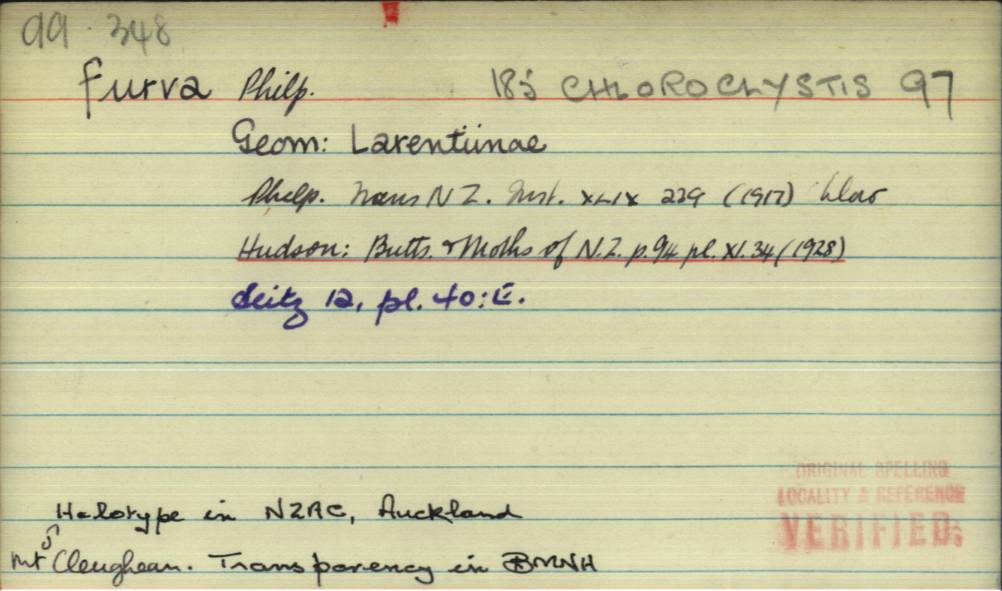 99. 348
furva Philp. 185 CHLOROCLYSTIS 97
Geom: Larentiinae
Philp. Trans NZ. Inst. XLIX 239 (1917)
Hudson: Butts. & Moths of N.Z. p.94 pl. XI. 34 (1928)
Seitz 12, pl. 40:E.
ORIGINAL SPELLING
LOCALITY & REFERENCE
VERIFIED:
Holotype in NZAC, Auckland
♂
Mt Cleughearn. Transparency in BMNH